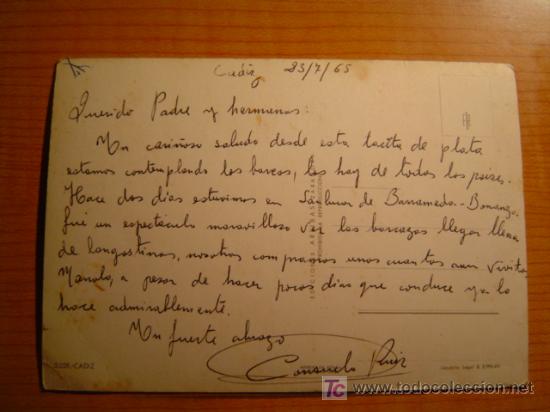 Cadiz 23/7/65
Querido Padre y hermanas:
Un cariñoso saludo desde esta tacita de plata
estamos contemplando los barcos, los hay de todos los paises.
Hace dos días estuvimos en Sanlucar de Barrameda - Bonanza.
fué un espectaculo maravilloso ver las barcazas llegar llenas
de langostinos, nosotros compramos unos cuantos aun vivitos
Manolo, a pesar de hacer pocos días que conduce ya lo
hace admirablemente.
Un fuerte abrazo
Consuelo Ruiz
CADIZ
todocoleccion
www.todocoleccion.net